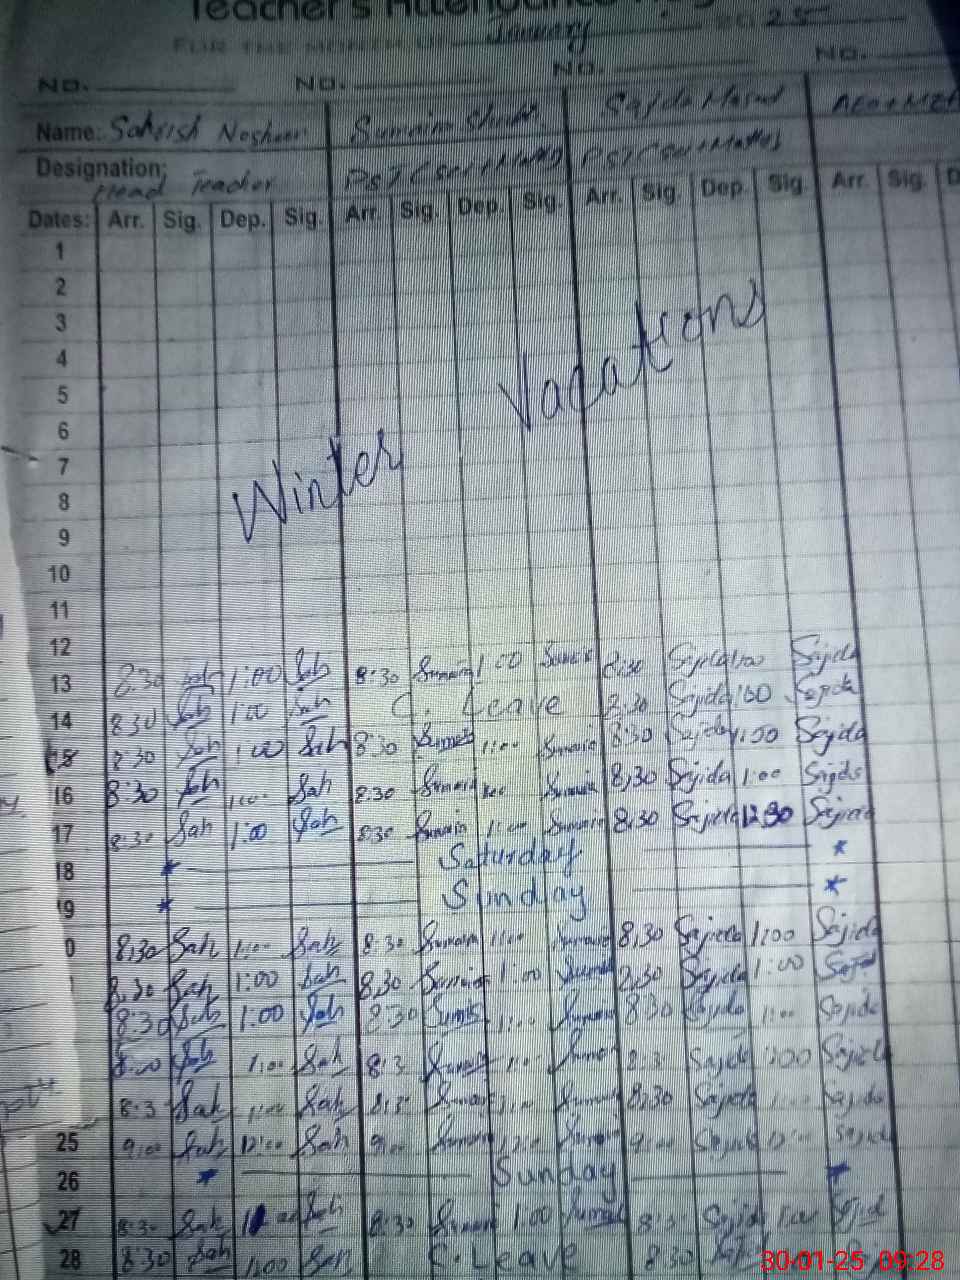 Teacher's Attendance Reg
FOR THE MONTH OF January 2025
No. No. No. No.
Name: Sehrish Nosheen Sumaira Sajida Masud
Designation: Head Teacher
Dates: Arr. Sig. Dep. Sig. Arr. Sig. Dep. Sig. Arr. Sig. Dep. Sig. Arr. Sig. D
1
2
3
4
5
6
7
8
9
10
11
12
Winter Vacations
13 8:30 Sah 1:00 Sah 8:30 Sumaira 1:00 Sumaira 8:30 Sajida 1:00 Sajida
14 8:30 Sah 1:00 Sah C. Leave 8:30 Sajida 1:00 Sajida
15 8:30 Sah 1:00 Sah 8:30 Sumaira 1:00 Sumaira 8:30 Sajida 1:00 Sajida
16 8:30 Sah 1:00 Sah 8:30 Sumaira 1:00 Sumaira 8,30 Sajida 1:00 Sajida
17 8:30 Sah 1:00 Sah 8:30 Sumaira 1:00 Sumaira 8,30 Sajida 12:30 Sajida
18 * Saturday *
19 * Sunday *
0 8,30 Sah 1:00 Sah 8:30 Sumaira 1:00 Sumaira 8,30 Sajida 1:00 Sajida
8,30 Sah 1:00 Sah 8,30 Sumaira 1:00 Sumaira 8,30 Sajida 1:00 Sajida
8:30 Sah 1:00 Sah 8:30 Sumaira 1:00 Sumaira 8:30 Sajida 1:00 Sajida
Sah 1:00 Sah 8:3 Sumaira 1:00 Sumaira 8:3 Sajida 1:00 Sajida
8:3 Sah 1:00 Sah 8:3 Sumaira 1:00 Sumaira 8,30 Sajida 1:00 Sajida
25 9:00 Sah 12:00 Sah 9:00 Sumaira 12:00 Sumaira 9:00 Sajida 12:00 Sajida
26 * Sunday *
27 8:30 Sah Sah 8:30 Sumaira 1:00 Sumaira 8:3 Sajida 1:00 Sajida
28 8:30 Sah 1:00 Sah C. Leave 8:30
30-01-25 09:28